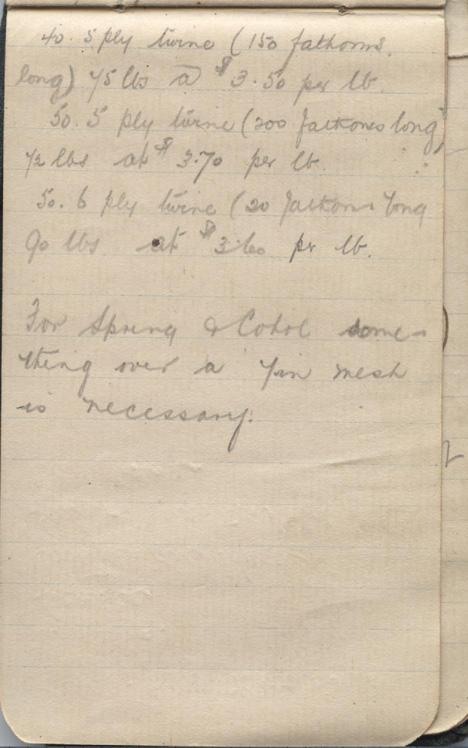 40. 5 ply twine (150 fathoms
long) 75 lbs @ $3.50 per lb.
50. 5 ply twine (200 fathoms long)
72 lbs at $3.70 per lb.
50. 6 ply twine (20 fathoms long
90 lbs at $3.60 pr lb.
For Spring & Cohoe some-
thing over a 7in mesh
is necessary.